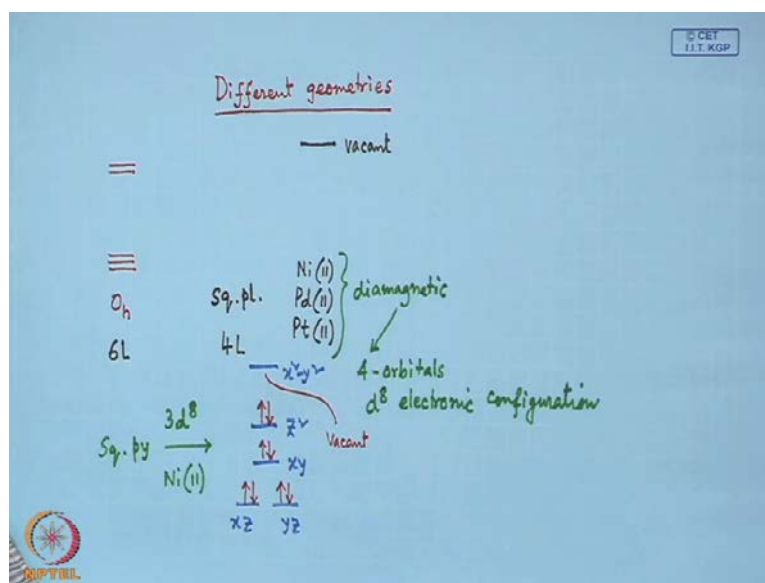 © CET
I.I.T. KGP
Different geometries
vacant
Oh
6L
Sq.pl.
4L
Ni(II)
Pd(II)
Pt(II)
diamagnetic
4-orbitals
d⁸ electronic configuration
x²-y²
Vacant
z²
xy
xz yz
Sq. py
3d⁸
Ni(II)
NPTEL